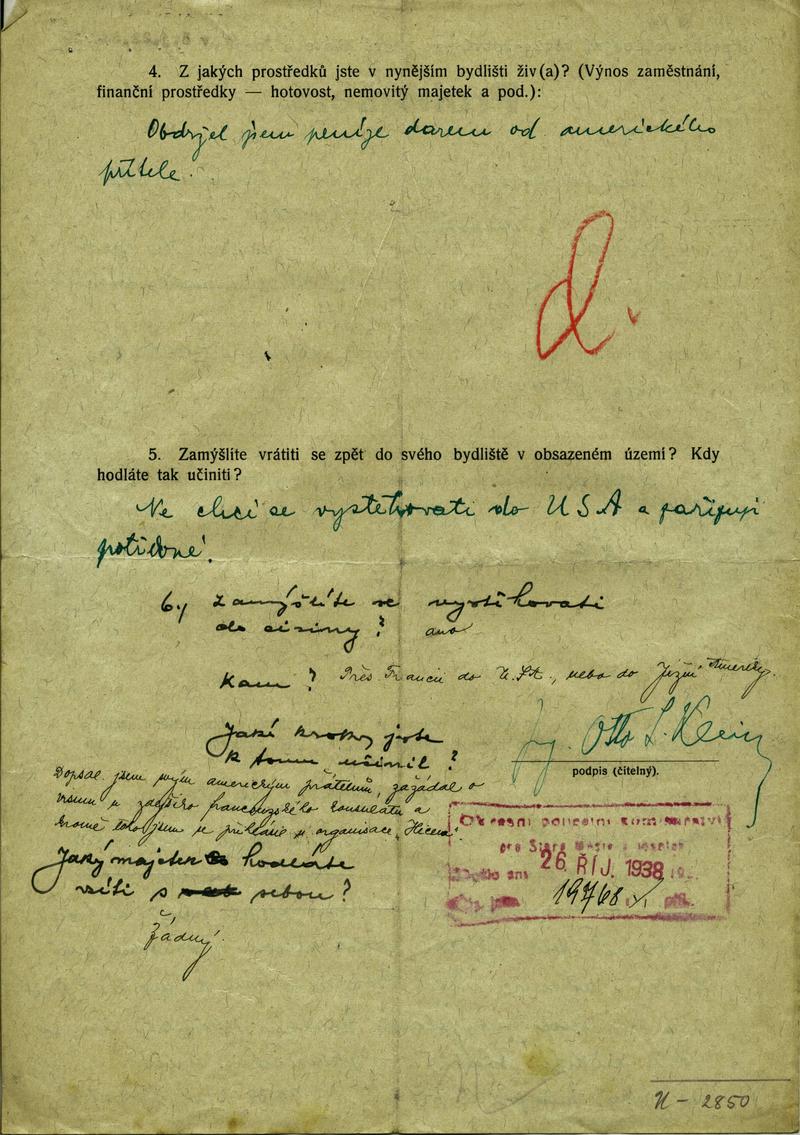 4. Z jakých prostředků jste v nynějším bydlišti živ(a)? (Výnos zaměstnání,
finanční prostředky — hotovost, nemovitý majetek a pod.):
Obdržel jsem peníze darem od amerického
přítele.
d.
5. Zamýšlíte vrátiti se zpět do svého bydliště v obsazeném území? Kdy
hodláte tak učiniti?
Ne chci se vystěhovati do USA a pařipuji
potřebné.
6) Zamýšlíte se vystěhovati
do ciziny? ano
Kam? Přes Francii do U.St., nebo do Jižní Ameriky.
Jaké kroky jste
k tomu učinil?
Ing. Otto L. Klein
podpis (čitelný).
Dopsal jsem svým americkým přátelům, zažádal o
visum u zdejšího francouzského konsulátu a
kromě toho jsem se přihlásil u organisace „Hicem"
Jaký majetek hodláte
vzíti s sebou?
žádný.
Okresní
pro Staré Město
26. ŘÍJ. 1938
19768
N - 2850